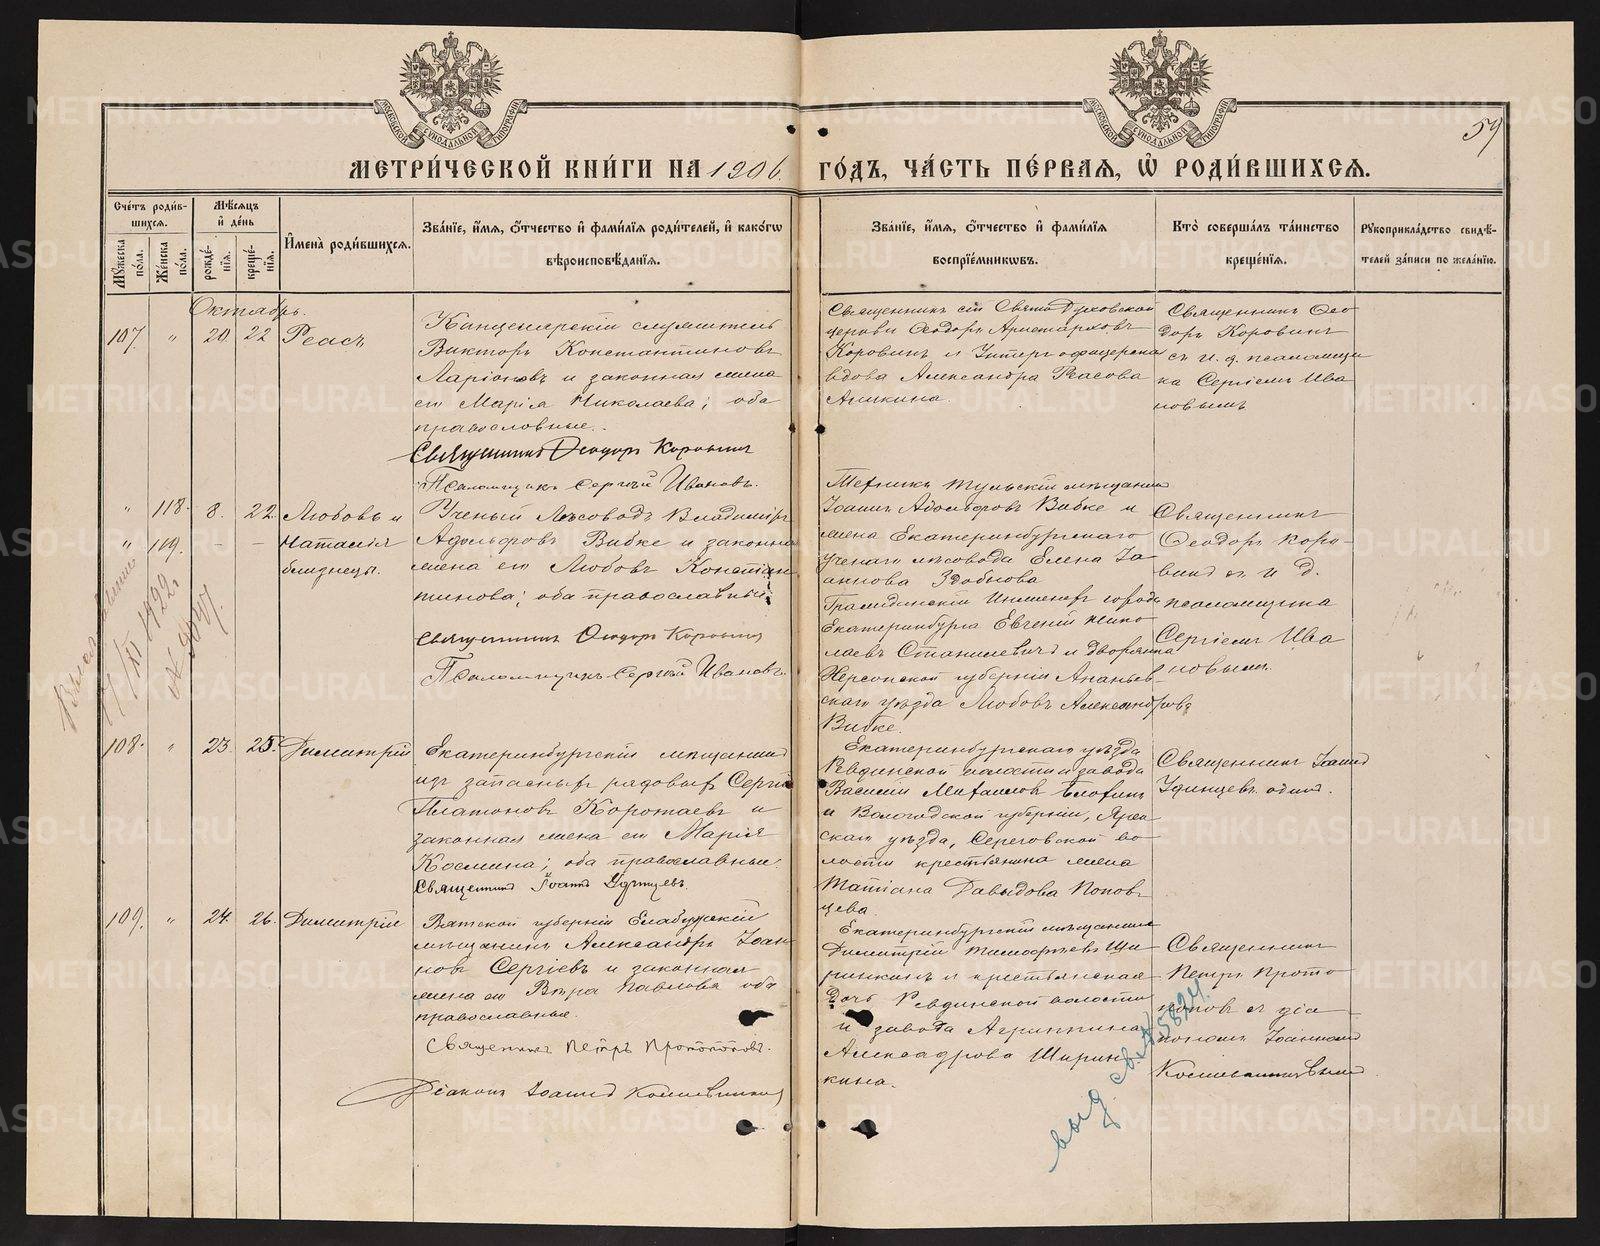 МЕТРИ́ЧЕСКОЙ КНИ́ГИ НА 1906. ГО́ДЪ, ЧА́СТЬ ПЕ́РВАЯ, Ѡ҆ РОДИ́ВШИХСЯ.
59
Сче́тъ роди́вшихся.
Му́жеска по́ла.
Же́нска по́ла.
Мѣ́сяцъ и҆ де́нь
рожде́нїя.
креще́нїя.
И҆мена̀ роди́вшихся.
Зва́нїе, и҆́мя, ѻ҆́тчество и҆ фами́лїя роди́телей, и҆ како́гѡ
вѣроисповѣ́данїя.
Зва́нїе, и҆́мя, ѻ҆́тчество и҆ фами́лїя
воспрїе́мникѡвъ.
Кто̀ соверша́лъ та́инство
креще́нїя.
Рукоприкла́дство свидѣ́-
телей за́писи по жела́нїю.
Октябрь.
107. " 20. 22
Канцелярскій служитель
Викторъ Константиновъ
Ларіоновъ и законная жена
его Марія Николаева; оба
православные.
Священникъ Ѳеодоръ Коровинъ
Псаломщикъ Сергѣй Ивановъ.
Священникъ сей Свято-Духовской
церкви Ѳеодоръ Аристарховъ
Коровинъ и Унтеръ-офицерская
вдова Александра
Аникина.
Священникъ Ѳео
доръ Коровинъ
съ и. д. псаломщи
ка Сергіемъ Ива
новымъ
" 118. 8. 22. Любовь и
" 119. – – Наталія
близнецы.
Ученый Лѣсоводъ Владиміръ
Адольфовъ Вибке и законная
жена его Любовь Констан
тинова; оба православные
Священникъ Ѳеодоръ Коровинъ
Псаломщикъ Сергѣй Ивановъ.
Техникъ Тульскій мѣщанинъ
Іоаннъ Адольфовъ Вибке и
жена Екатеринбургскаго
ученаго лѣсовода Елена Іо
аннова Здобнова
Гражданскій Инженеръ города
Екатеринбурга Евгеній Нико
лаевъ Станкевичъ и дворянка
Херсонской губерніи Ананьев-
скаго уѣзда Любовь Александрова
Вибке.
Священникъ
Ѳеодоръ Коро-
винъ съ и д.
псаломщика
Сергіемъ Ива
новымъ.
108. " 23. 25. Димитрій
Екатеринбургскій мѣщанинъ
изъ запасныхъ рядовыхъ Сергій
Платоновъ Коротаевъ и
законная жена его Марія
Косьмина; оба православные.
Священникъ Іоаннъ Удинцевъ.
Екатеринбургскаго уѣзда
Ревдинской волости и завода
Василій Михаиловъ Блохинъ
и Вологодской губерніи, Ярен
скаго уѣзда, Сереговской во
лости крестьянина жена
Татіана Давыдова Попов
цева.
Священникъ Іоаннъ
Удинцевъ одинъ.
109. " 24. 26. Димитрій
Вятской губерніи Елабужскій
мѣщанинъ Александръ Іоан
новъ Сергіевъ и законная
жена его Вѣра Павлова оба
православные.
Священникъ Петръ Протопоповъ.
Діаконъ Іоаннъ
Екатеринбургскій мѣщанинъ
Димитрій Тимофѣевъ Ши
ринкинъ и крестьянская
дочь Ревдинской волости
и завода Агриппина
Александрова Ширин
кина.
Священникъ
Петръ Прото
поповъ съ діа
кономъ Іоанномъ
выд. св. № 5824.